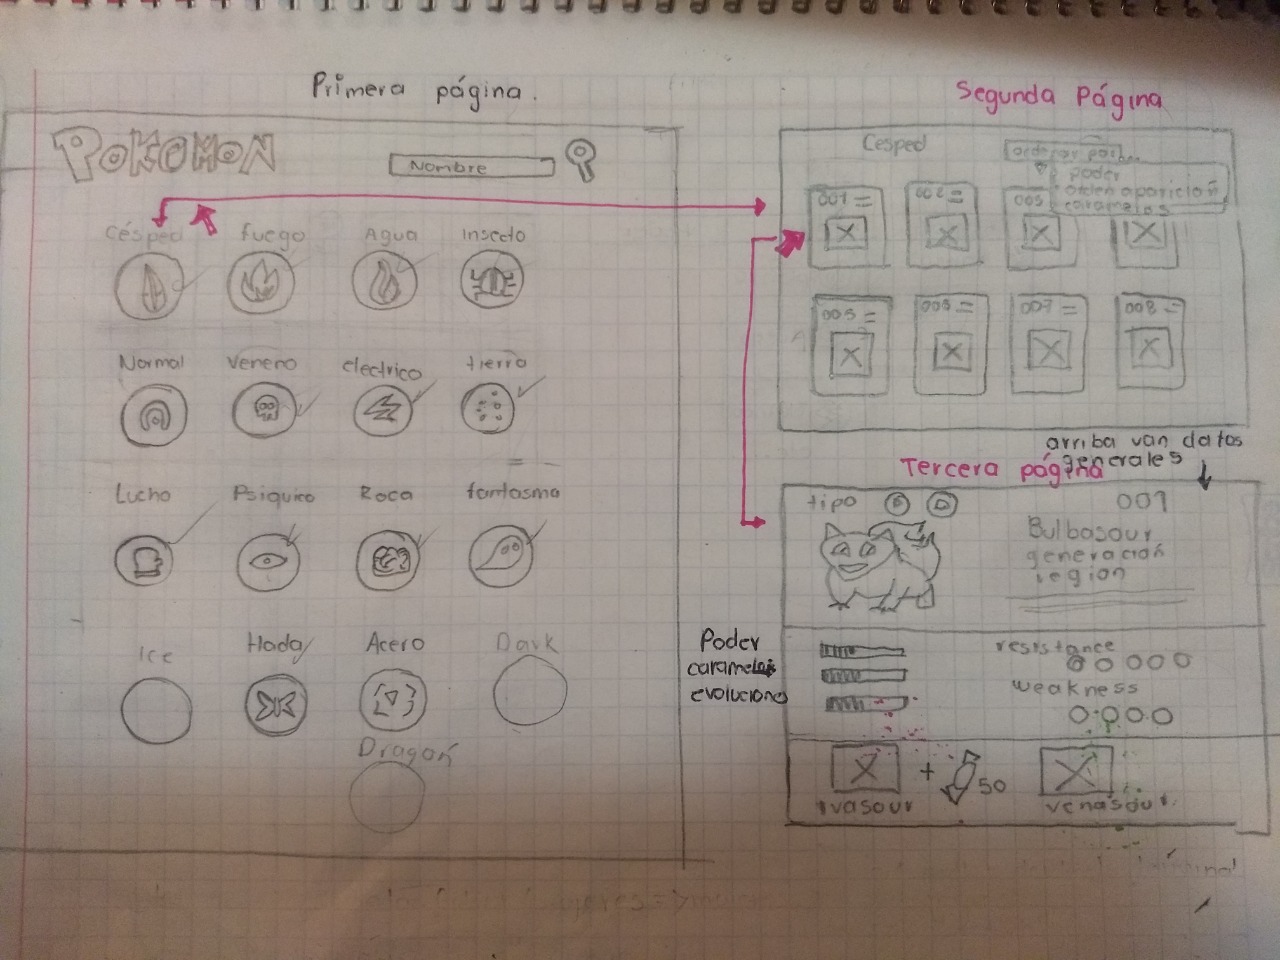 Primera página.
POKOMON
Nombre
Césped fuego Agua Insecto
Normal Veneno electrico tierra
Lucha Psiquico Roca fantasma
Ice Hada Acero Dark
Dragon
Segunda Página
Cesped
ordenar por
poder
orden aparición
caramelos
001 = 002 = 003
005 = 006 = 007 = 008 =
arriba van datos
generales
Tercera página
tipo
001
Bulbasour
generación
region
Poder
caramelos
evoluciono
resistance
weakness
+ 50
Ivasour
venasour